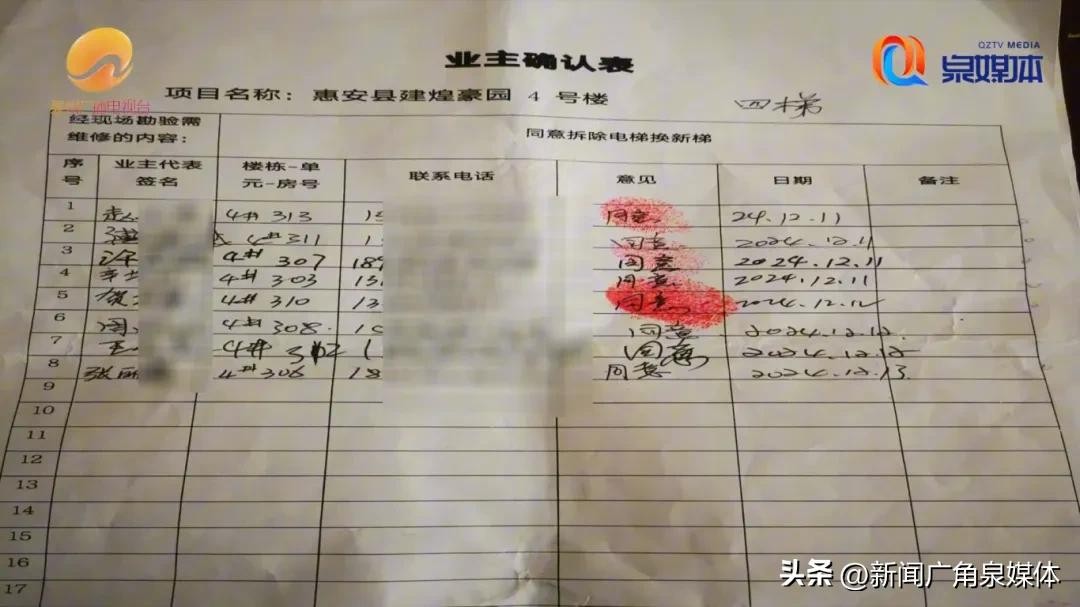 QZTV MEDIA
泉媒体
业主确认表
项目名称：惠安县建煌豪园 4 号楼 四梯
经现场勘验需维修的内容： 同意拆除电梯换新梯
序号 业主代表签名 楼栋-单元-房号 联系电话 意见 日期 备注
1 4# 313 同意 24.12.11
2 4# 311 同意 2024.12.11
3 许 4# 307 189 同意 2024.12.11
4 4# 303 同意 2024.12.11
5 4# 310 同意 2024.12.12
6 周 4# 308 同意 2024.12.12
7 王 4# 同意 2024.12.12
8 张丽 4# 306 18 同意 2024.12.13
9
10
11
12
13
14
15
16
17
头条 @新闻广角泉媒体